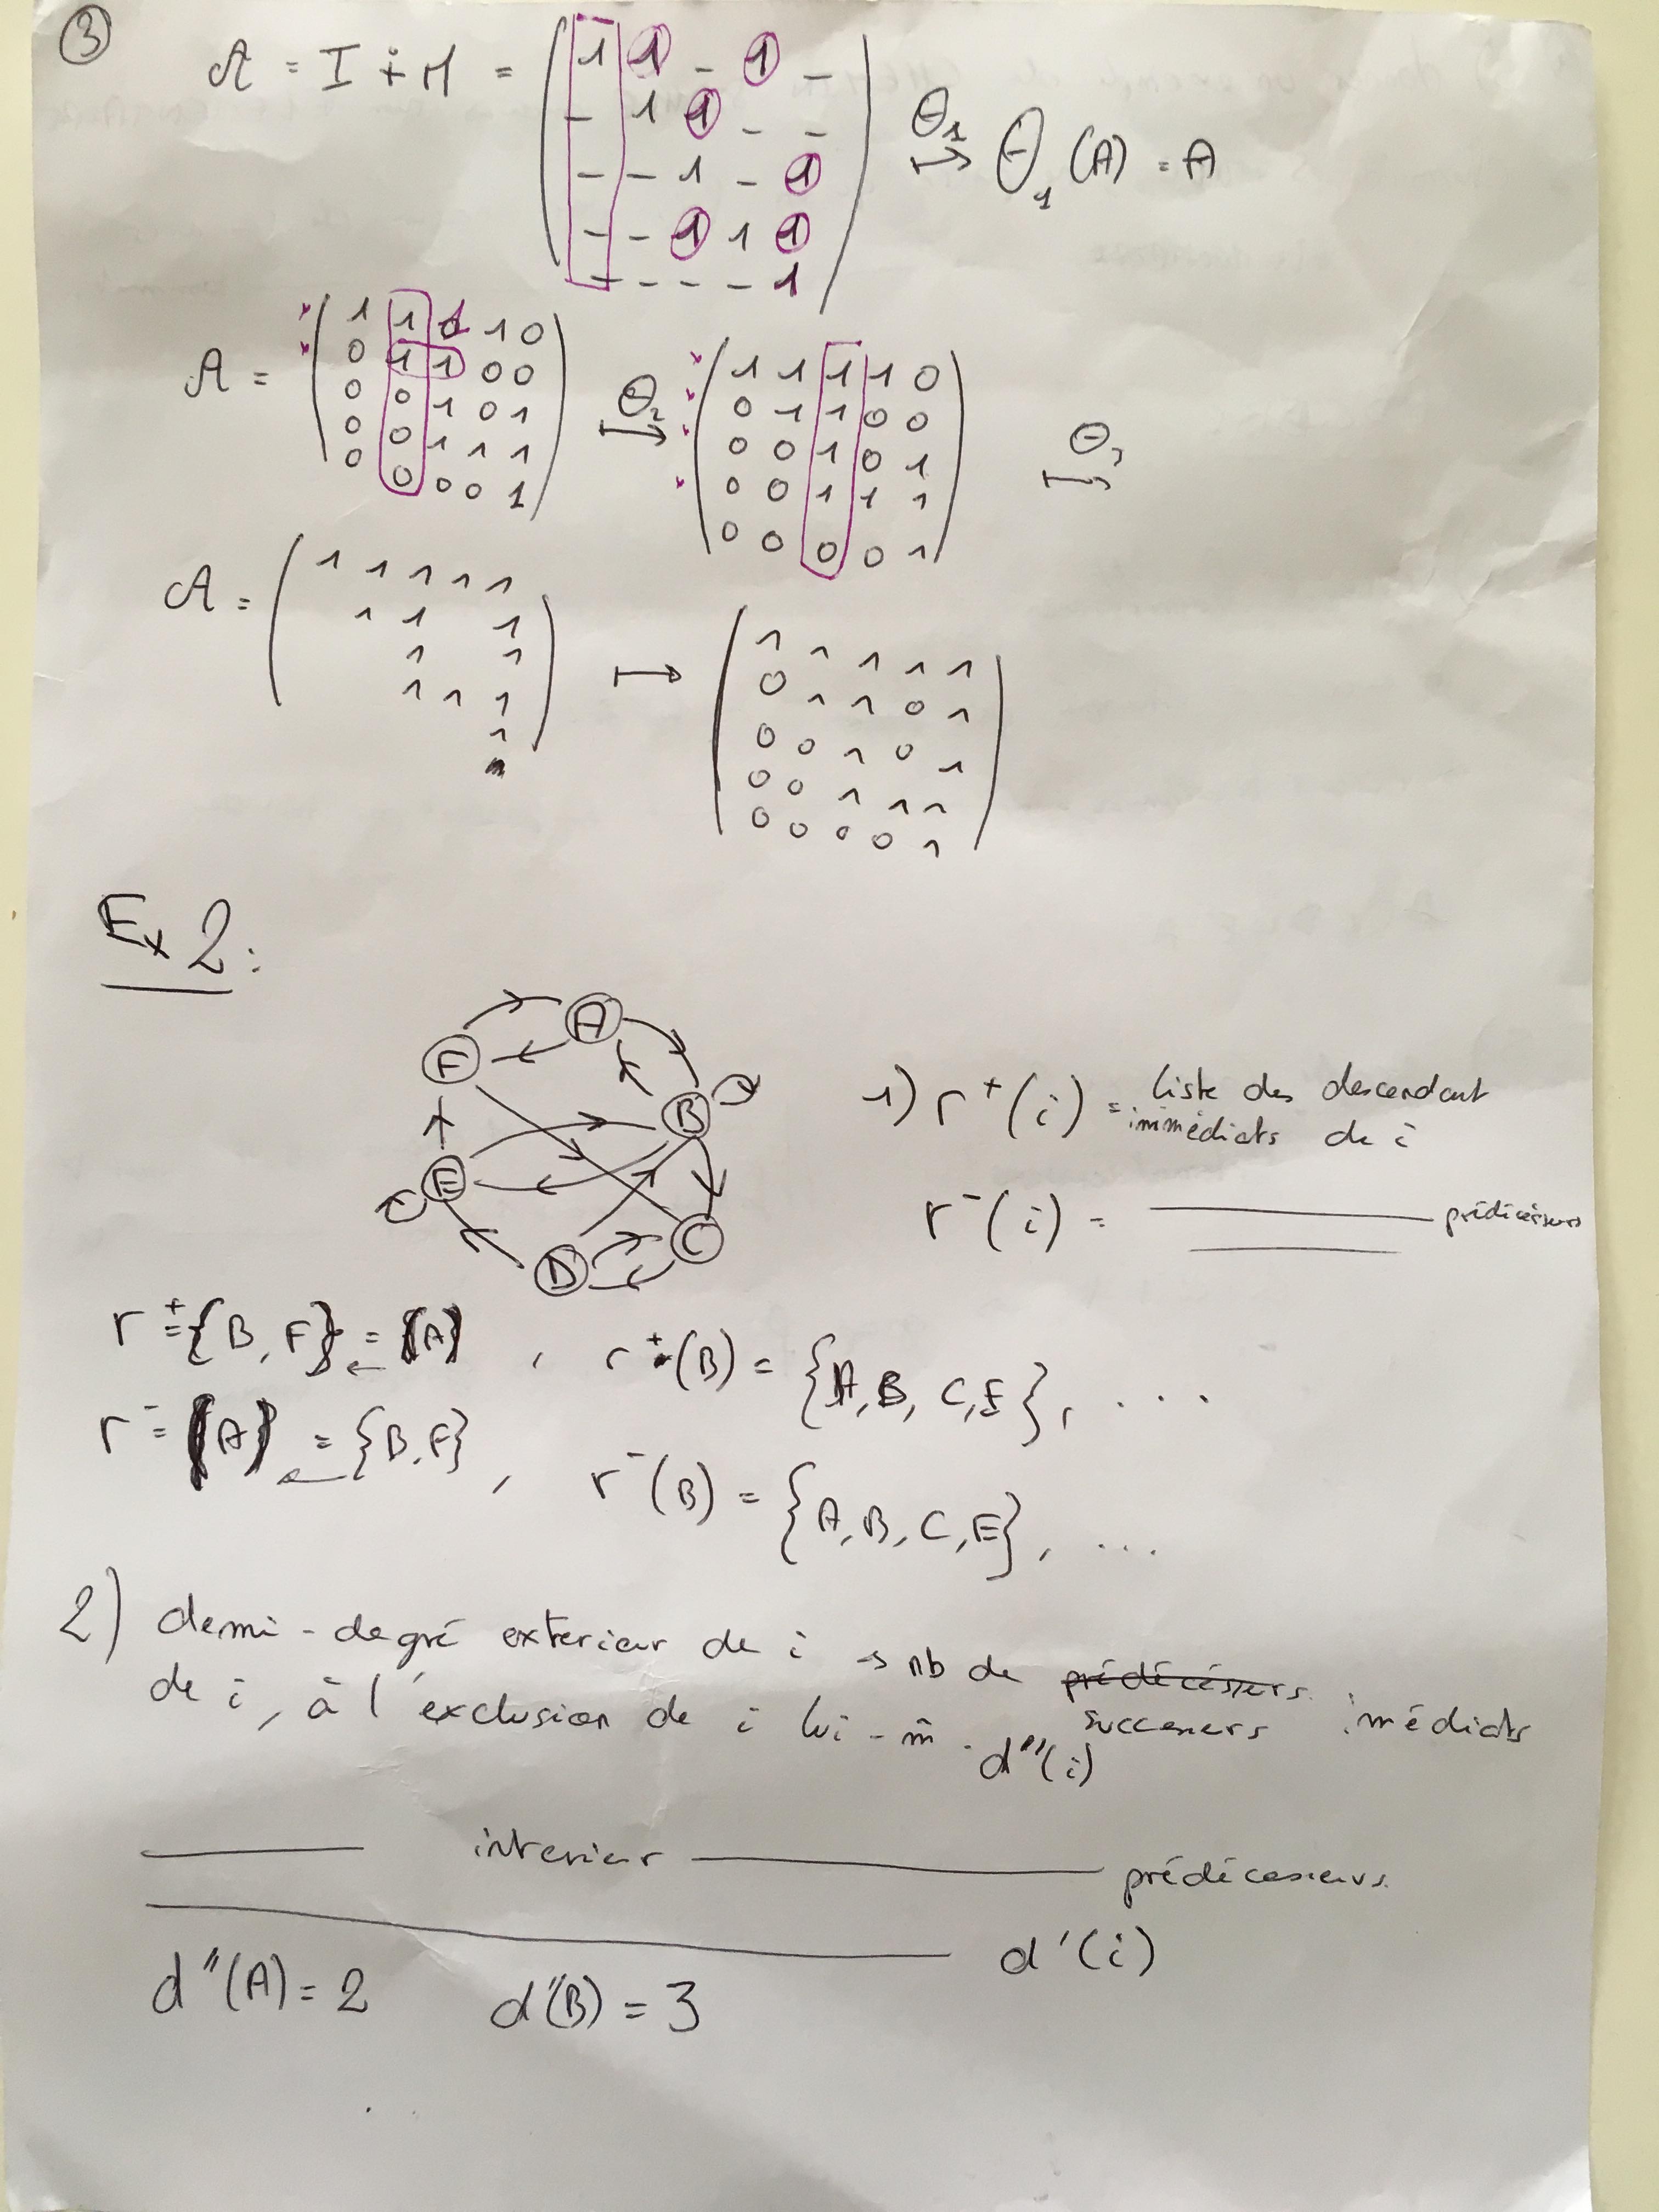 ③
A = I ∔ M =
1 ① - ① -
- 1 ① - -
- - 1 - ①
- - ① 1 ①
- - - - 1
Θ1 ↦ Θ1 (A) = A
A =
1 1 1 1 0
0 1 1 0 0
0 0 1 0 1
0 0 1 1 1
0 0 0 0 1
Θ2 ↦
1 1 1 1 0
0 1 1 0 0
0 0 1 0 1
0 0 1 1 1
0 0 0 0 1
Θ3 ↦
A =
1 1 1 1 1
1 1 1
1 1
1 1 1
1
↦
1 1 1 1 1
0 1 1 0 1
0 0 1 0 1
0 0 1 1 1
0 0 0 0 1
Ex 2 :
A
F
B
E
C
D
1) r⁺(i) = liste des descendant
immédiats de i
r⁻(i) = ——— prédécésseurs
r⁺ = {B, F} = (A) , r⁺(B) = {A, B, C, E}, ...
r⁻ = (A) = {B, F} , r⁻(B) = {A, B, C, E}, ...
2) demi-degré exterieur de i → nb de prédécésseurs
successeurs immédiats
de i, à l'exclusion de i lui-m̂. d''(i)
——— interieur ——— prédécesseurs.
——— d'(i)
d''(A) = 2 d''(B) = 3